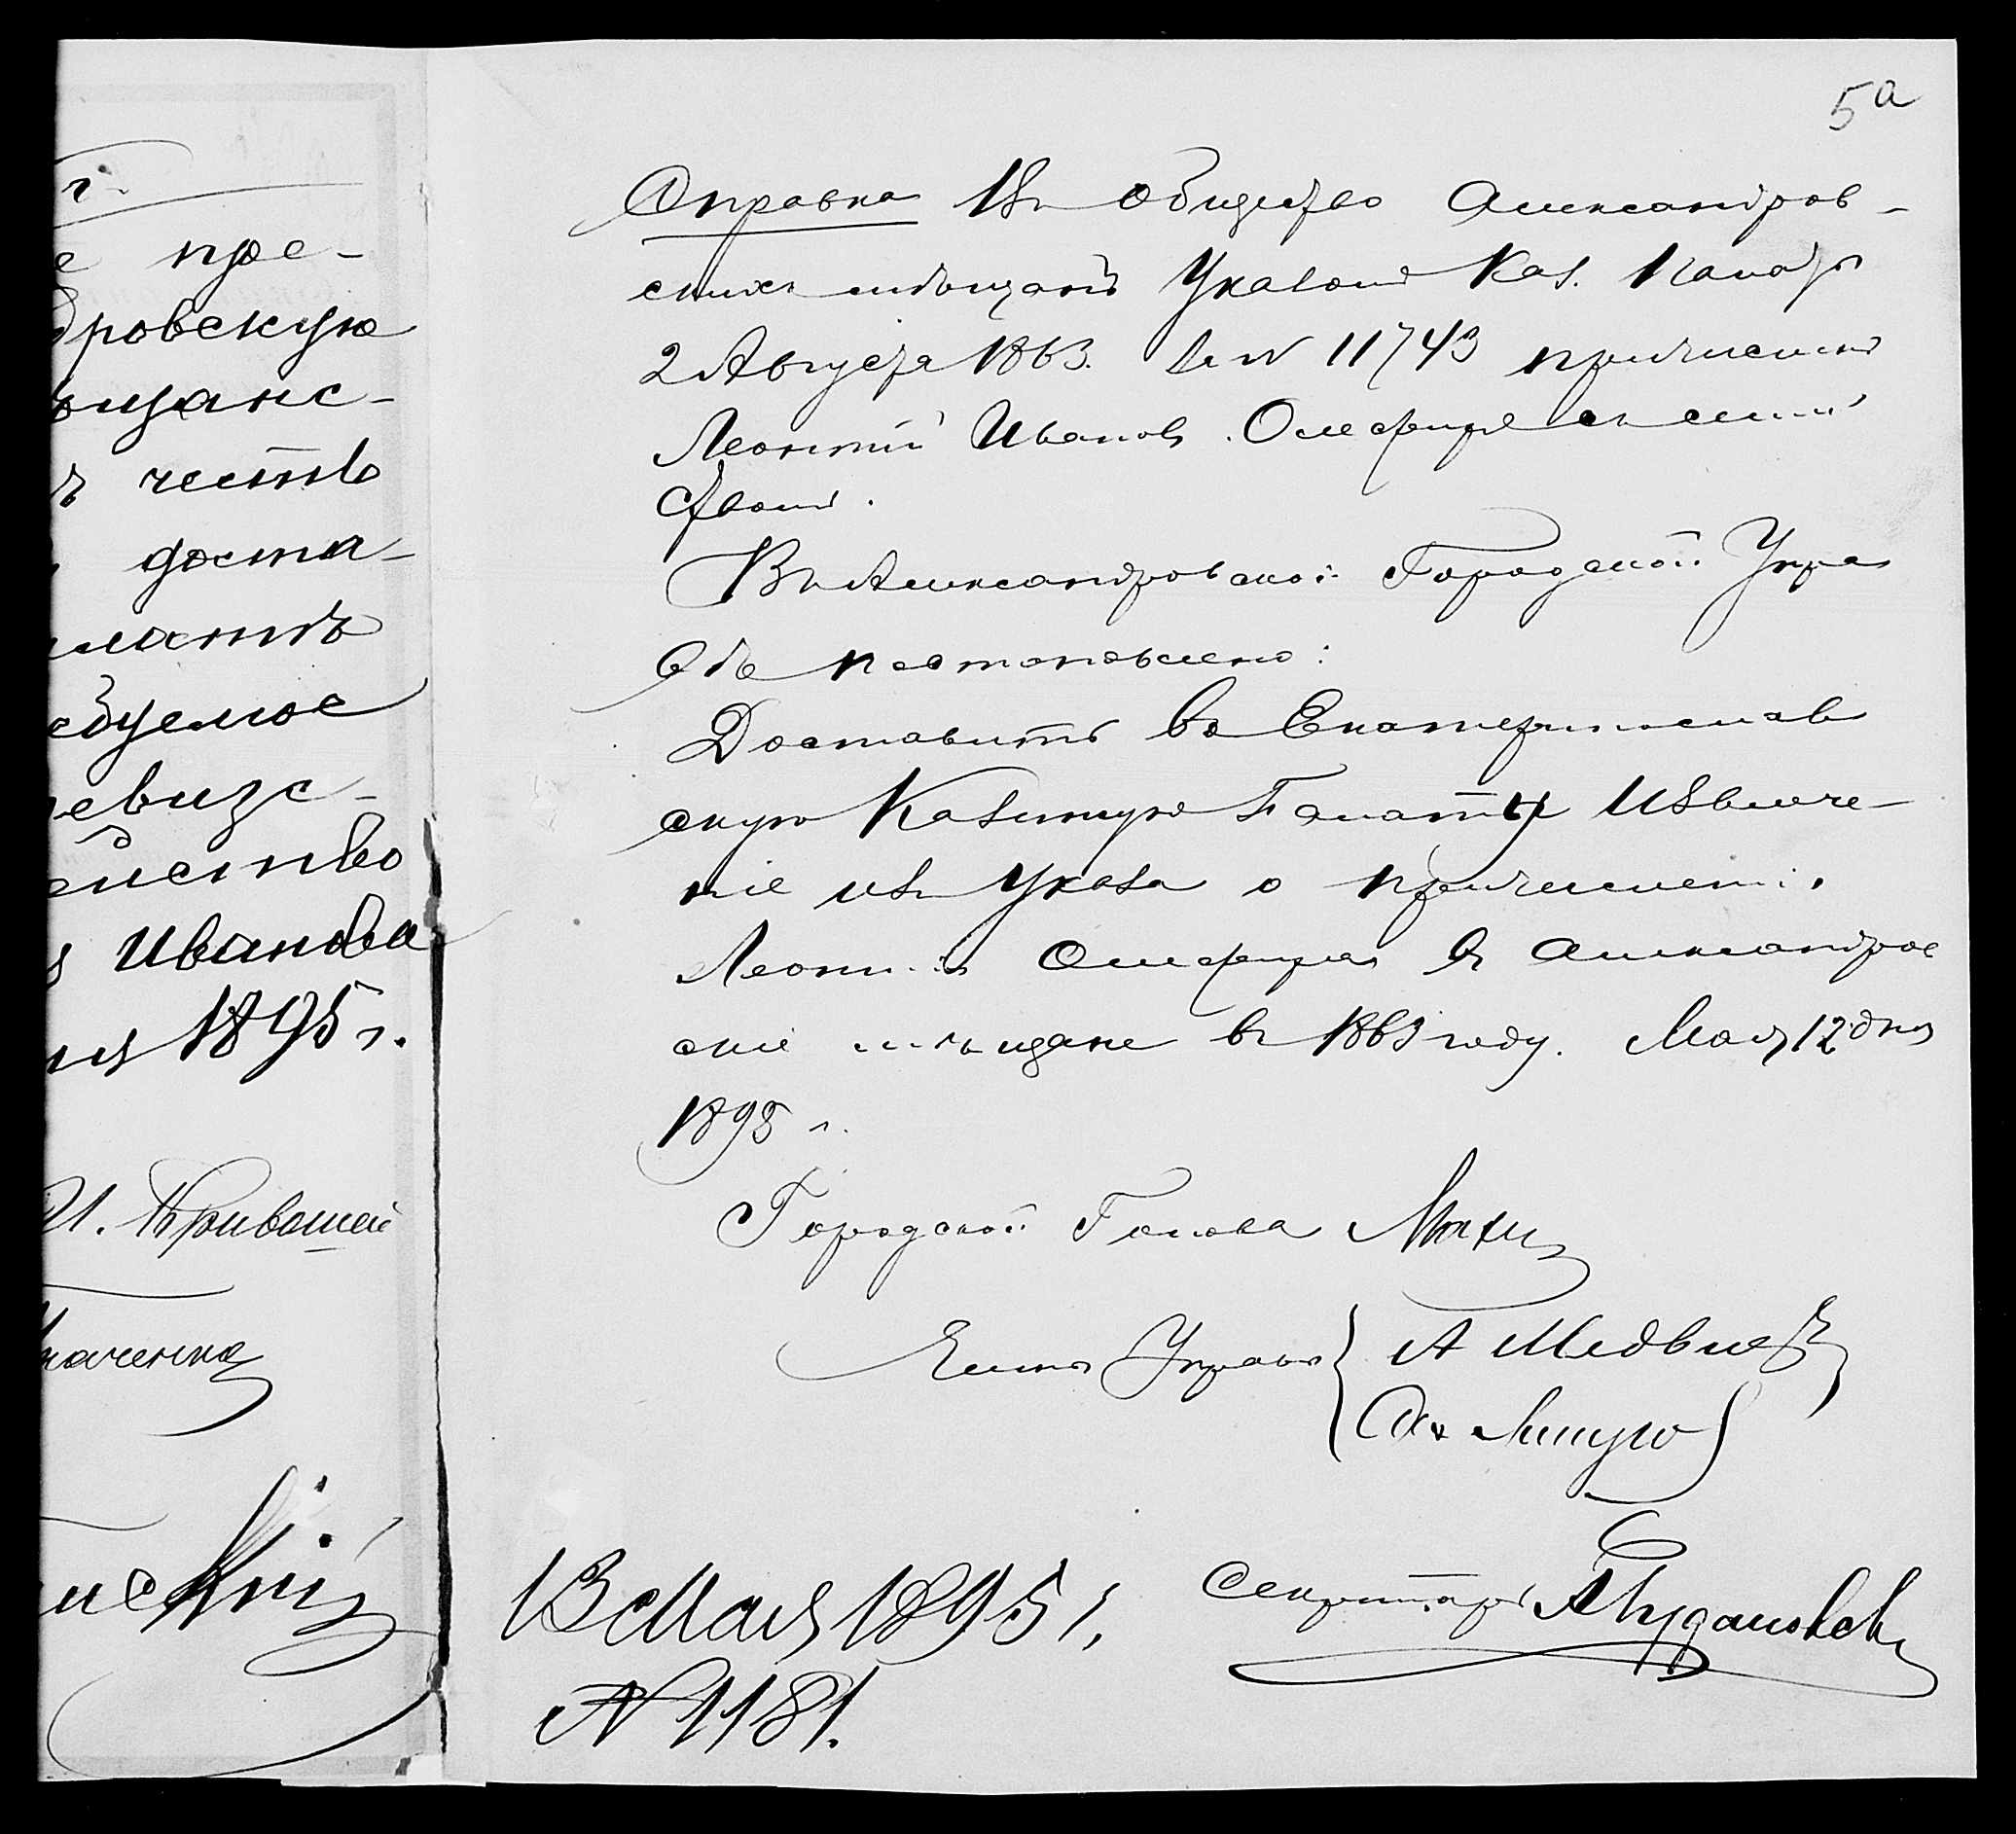 г.
е пре-
дровскую
ѣщанс-
ъ честь
доста-
латѣ
ебуемое
ревизс-
ейство
Иванова
ня 1895 г.
И. Кривошей
каченко
5а
Справка Въ общество Александров-
скихъ мѣщанъ Указомъ Каз. Палаты
2 Августа 1863. за N 11743 причисленъ
Леонтій Ивановъ съ семей
ствомъ.
Въ Александровской Городской Упра
вѣ постановлено:
Доставить въ Екатеринослав
скую Казенную Палату Извлече-
ніе изъ Указа о причисленіи
Леонтія въ Александров
скіе мѣщане въ 1863 году. Мая 12 дня
1895 г.
Городской Голова
Члены Управы А Медвѣдевъ
13 Мая 1895 г.
Секретарь
N 1181.